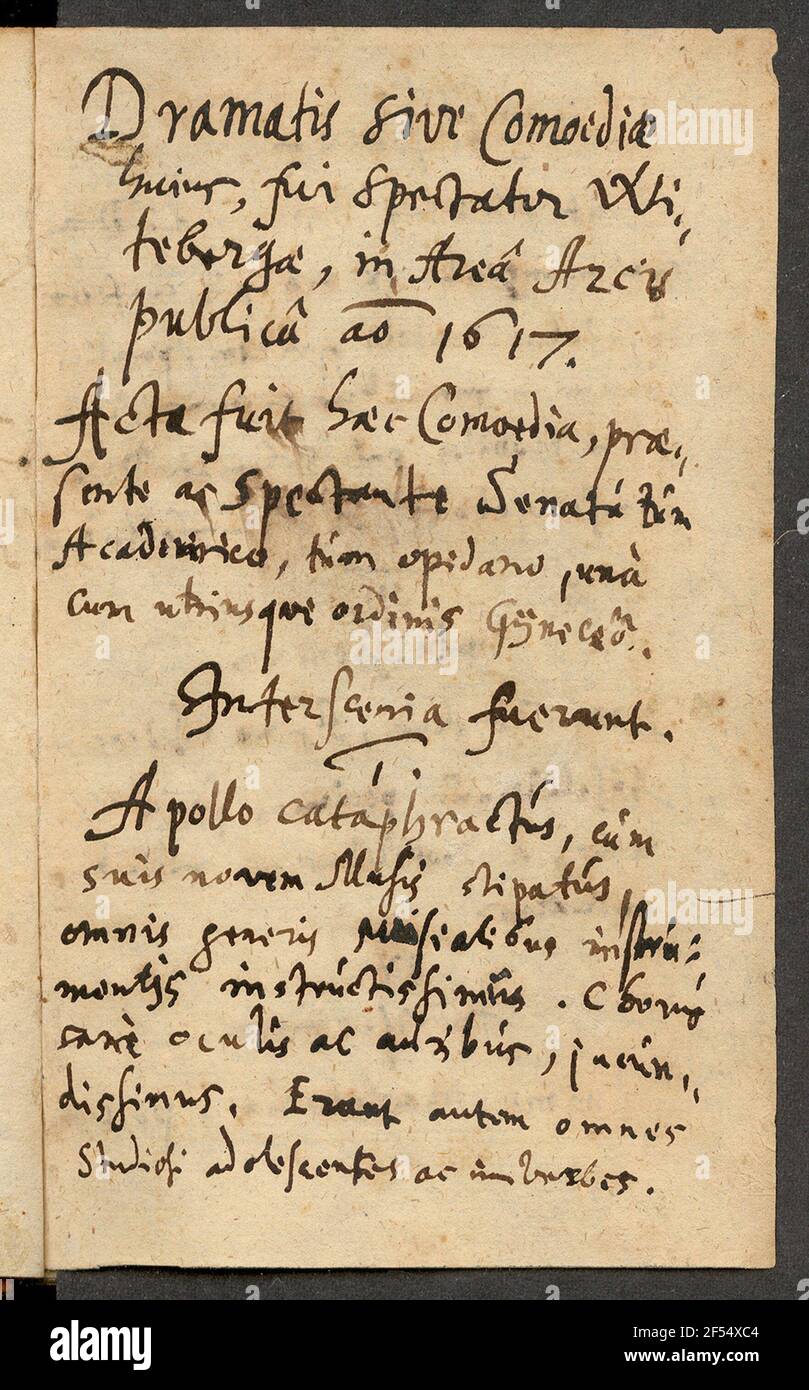 Dramatis sive Comoediæ
huius, fui spectator Wi-
tebergæ, in Areâ Arcis
publicâ aō 1617.
Acta fuit hæc Comoedia, præ-
sente ac spectante Senatú túm
Academico, túm opidano, unà
cum utriusque ordinis Gÿneceô.
Interscenia fuerunt.
1.
Apollo cataphractús, cúm
suis novem Musis stipatús,
omnis generis musicalibus instrú-
mentis instrúctissimús. Chorus
sanè oculis ac auribús, jucún-
dissimus. Erant autem omnes
Studiosi adolescentes ac imberbes.
alamy
Image ID: 2F54XC4
www.alamy.com